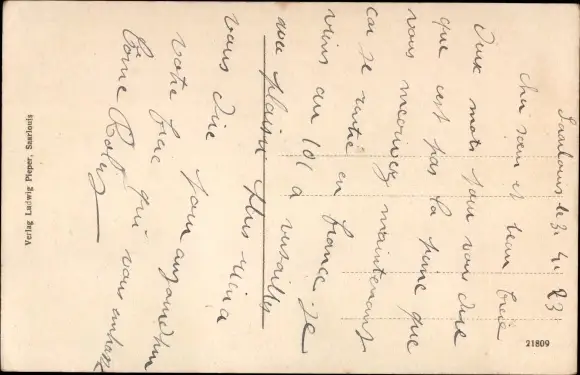 Saarlouis le 3. 4. 23
cher sœur et beau frère
Deux mots pour vous dire
que est pas la peine que
vous mecriviez maintenant
car je rentre en france je
viens au 101 a versailles
au plaisir plus rien a
vous Dire pour aujourdhui
votre frere qui vous embrasse
Verlag Ludwig Pieper, Saarlouis
21809